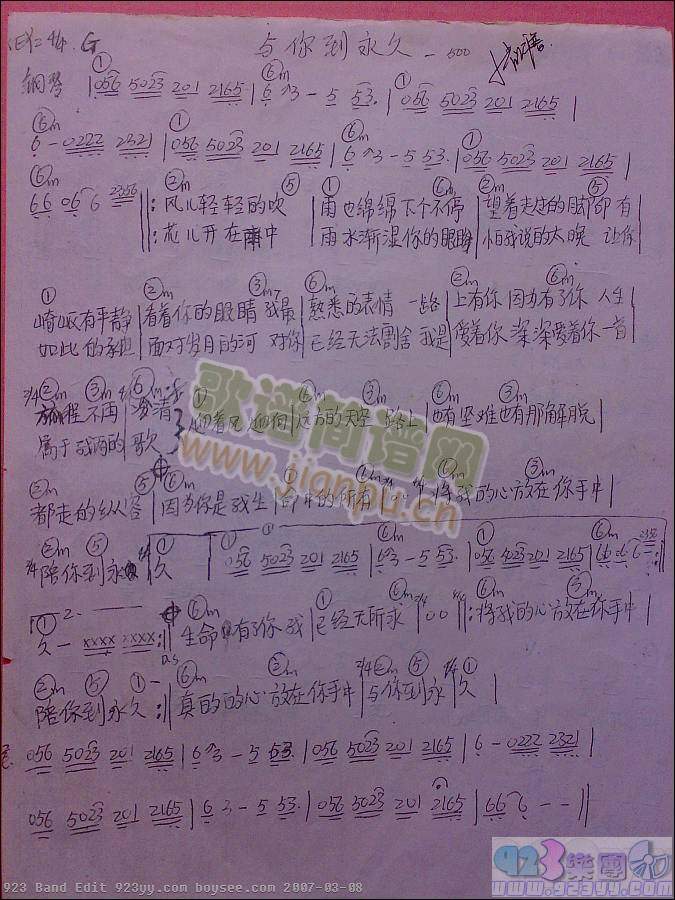 4/4. G 与你到永久
钢琴 | 056 5023 201 2165 | 6 3 - 5 53. | 056 5023 201 2165 |
6 - 0222 2321 | 056 5023 201 2165 | 6 3 - 5 53. | 056 5023 201 2165 |
66 06 6 2356 ‖: 风儿轻轻的吹 | 雨也绵绵下个不停 | 望着走过的脚印 有
花儿开在雨中 | 雨水渐湿你的眼睛 | 怕我说的太晚 让你
崎岖有平静 | 看着你的眼睛 我最 | 熟悉的表情 一路 | 上有你 因为有了你 人生
如此的承担 | 面对岁月的河 对你 | 已经无法割舍 我是 | 爱着你 深深爱着你 一首
旅程不再 | 凄清
属于我两的 | 歌 远方的天空 路上 | 也有坚难也有那解脱 |
因为你是我生 | 命中的所有 | 00 | 将我的心放在你手中 |
陪你到永 | 久 | 056 5023 201 2165 | 6 3 - 5 53. | 056 5023 201 2165 | 66 06 6 2356 :‖
2.
久 - xxxx xxxx :‖ 生命有了你 我 | 已经无所求 | 00 ‖: 将我的心放在你手中 |
D.S
陪你到永久 :‖ 真的的心放在你手中 | 与你到永 | 久 |
056 5023 201 2165 | 6 3 - 5 53. | 056 5023 201 2165 | 6 - 0222 2321 |
056 5023 201 2165 | 6 3 - 5 53. | 056 5023 201 2165 | 66 6 - - ‖
歌谱简谱网
www.jianpu.cn
923 Band Edit 923yy.com boysee.com 2007-03-08
923樂團
www.923yy.com